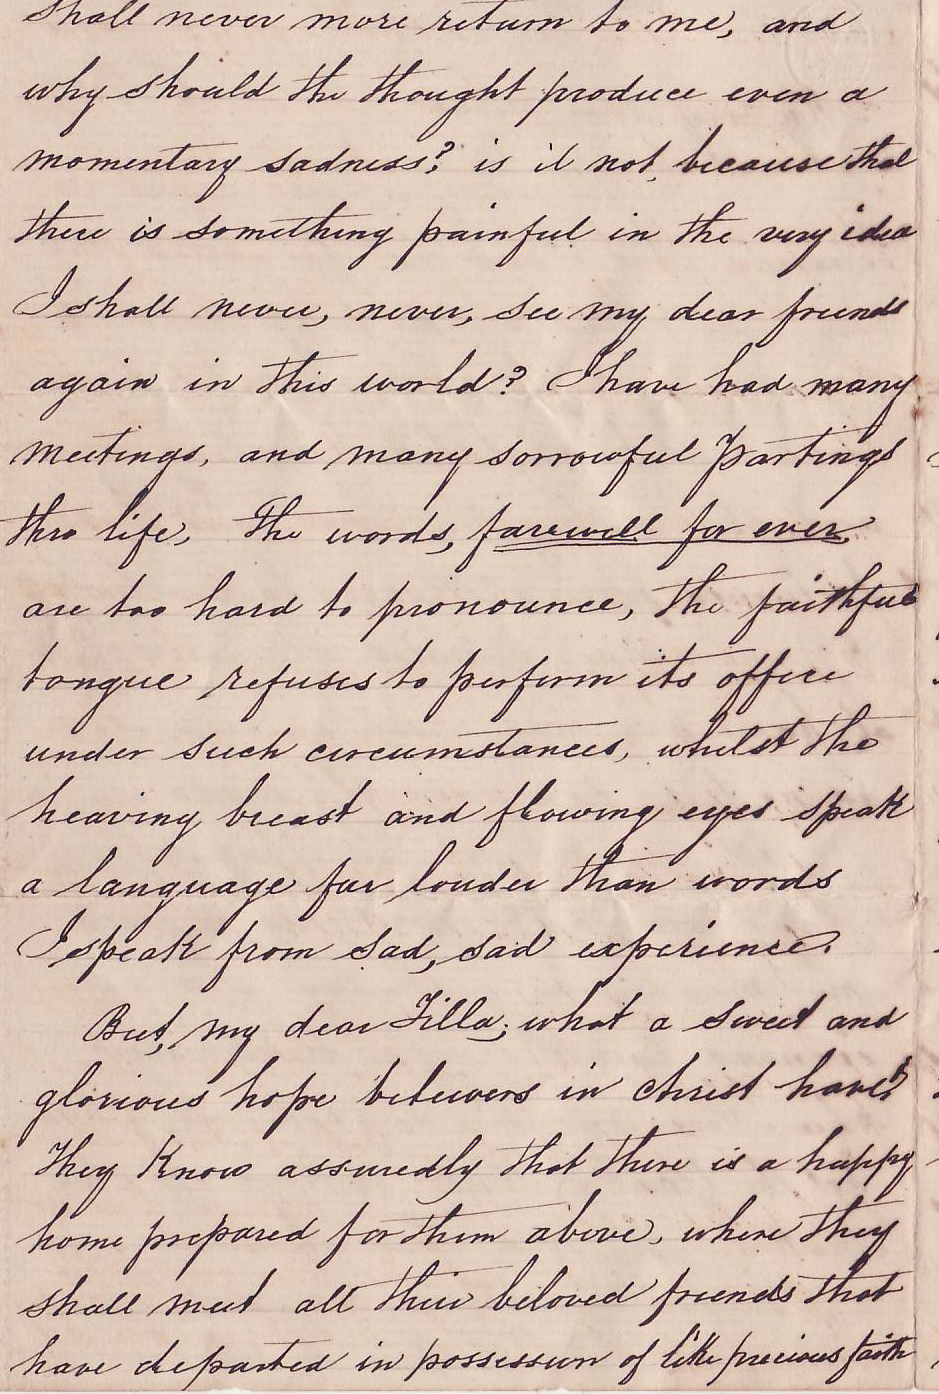 shall never more return to me, and
why should the thought produce even a
momentary sadness? is it not, because that
there is something painful in the very idea
I shall never, never, see my dear friends
again in this world? I have had many
meetings, and many sorrowful partings
thro life, The words, farewell for ever,
are too hard to pronounce, the faithful
tongue refuses to perform its office
under such circumstances, whilst the
heaving breast and flowing eyes speak
a language far louder than words
I speak from sad, sad experience.
But, my dear Tilla; what a sweet and
glorious hope believers in Christ have!
They know assuredly that there is a happy
home prepared for them above, where they
shall meet all their beloved friends that
have departed in possession of like precious faith